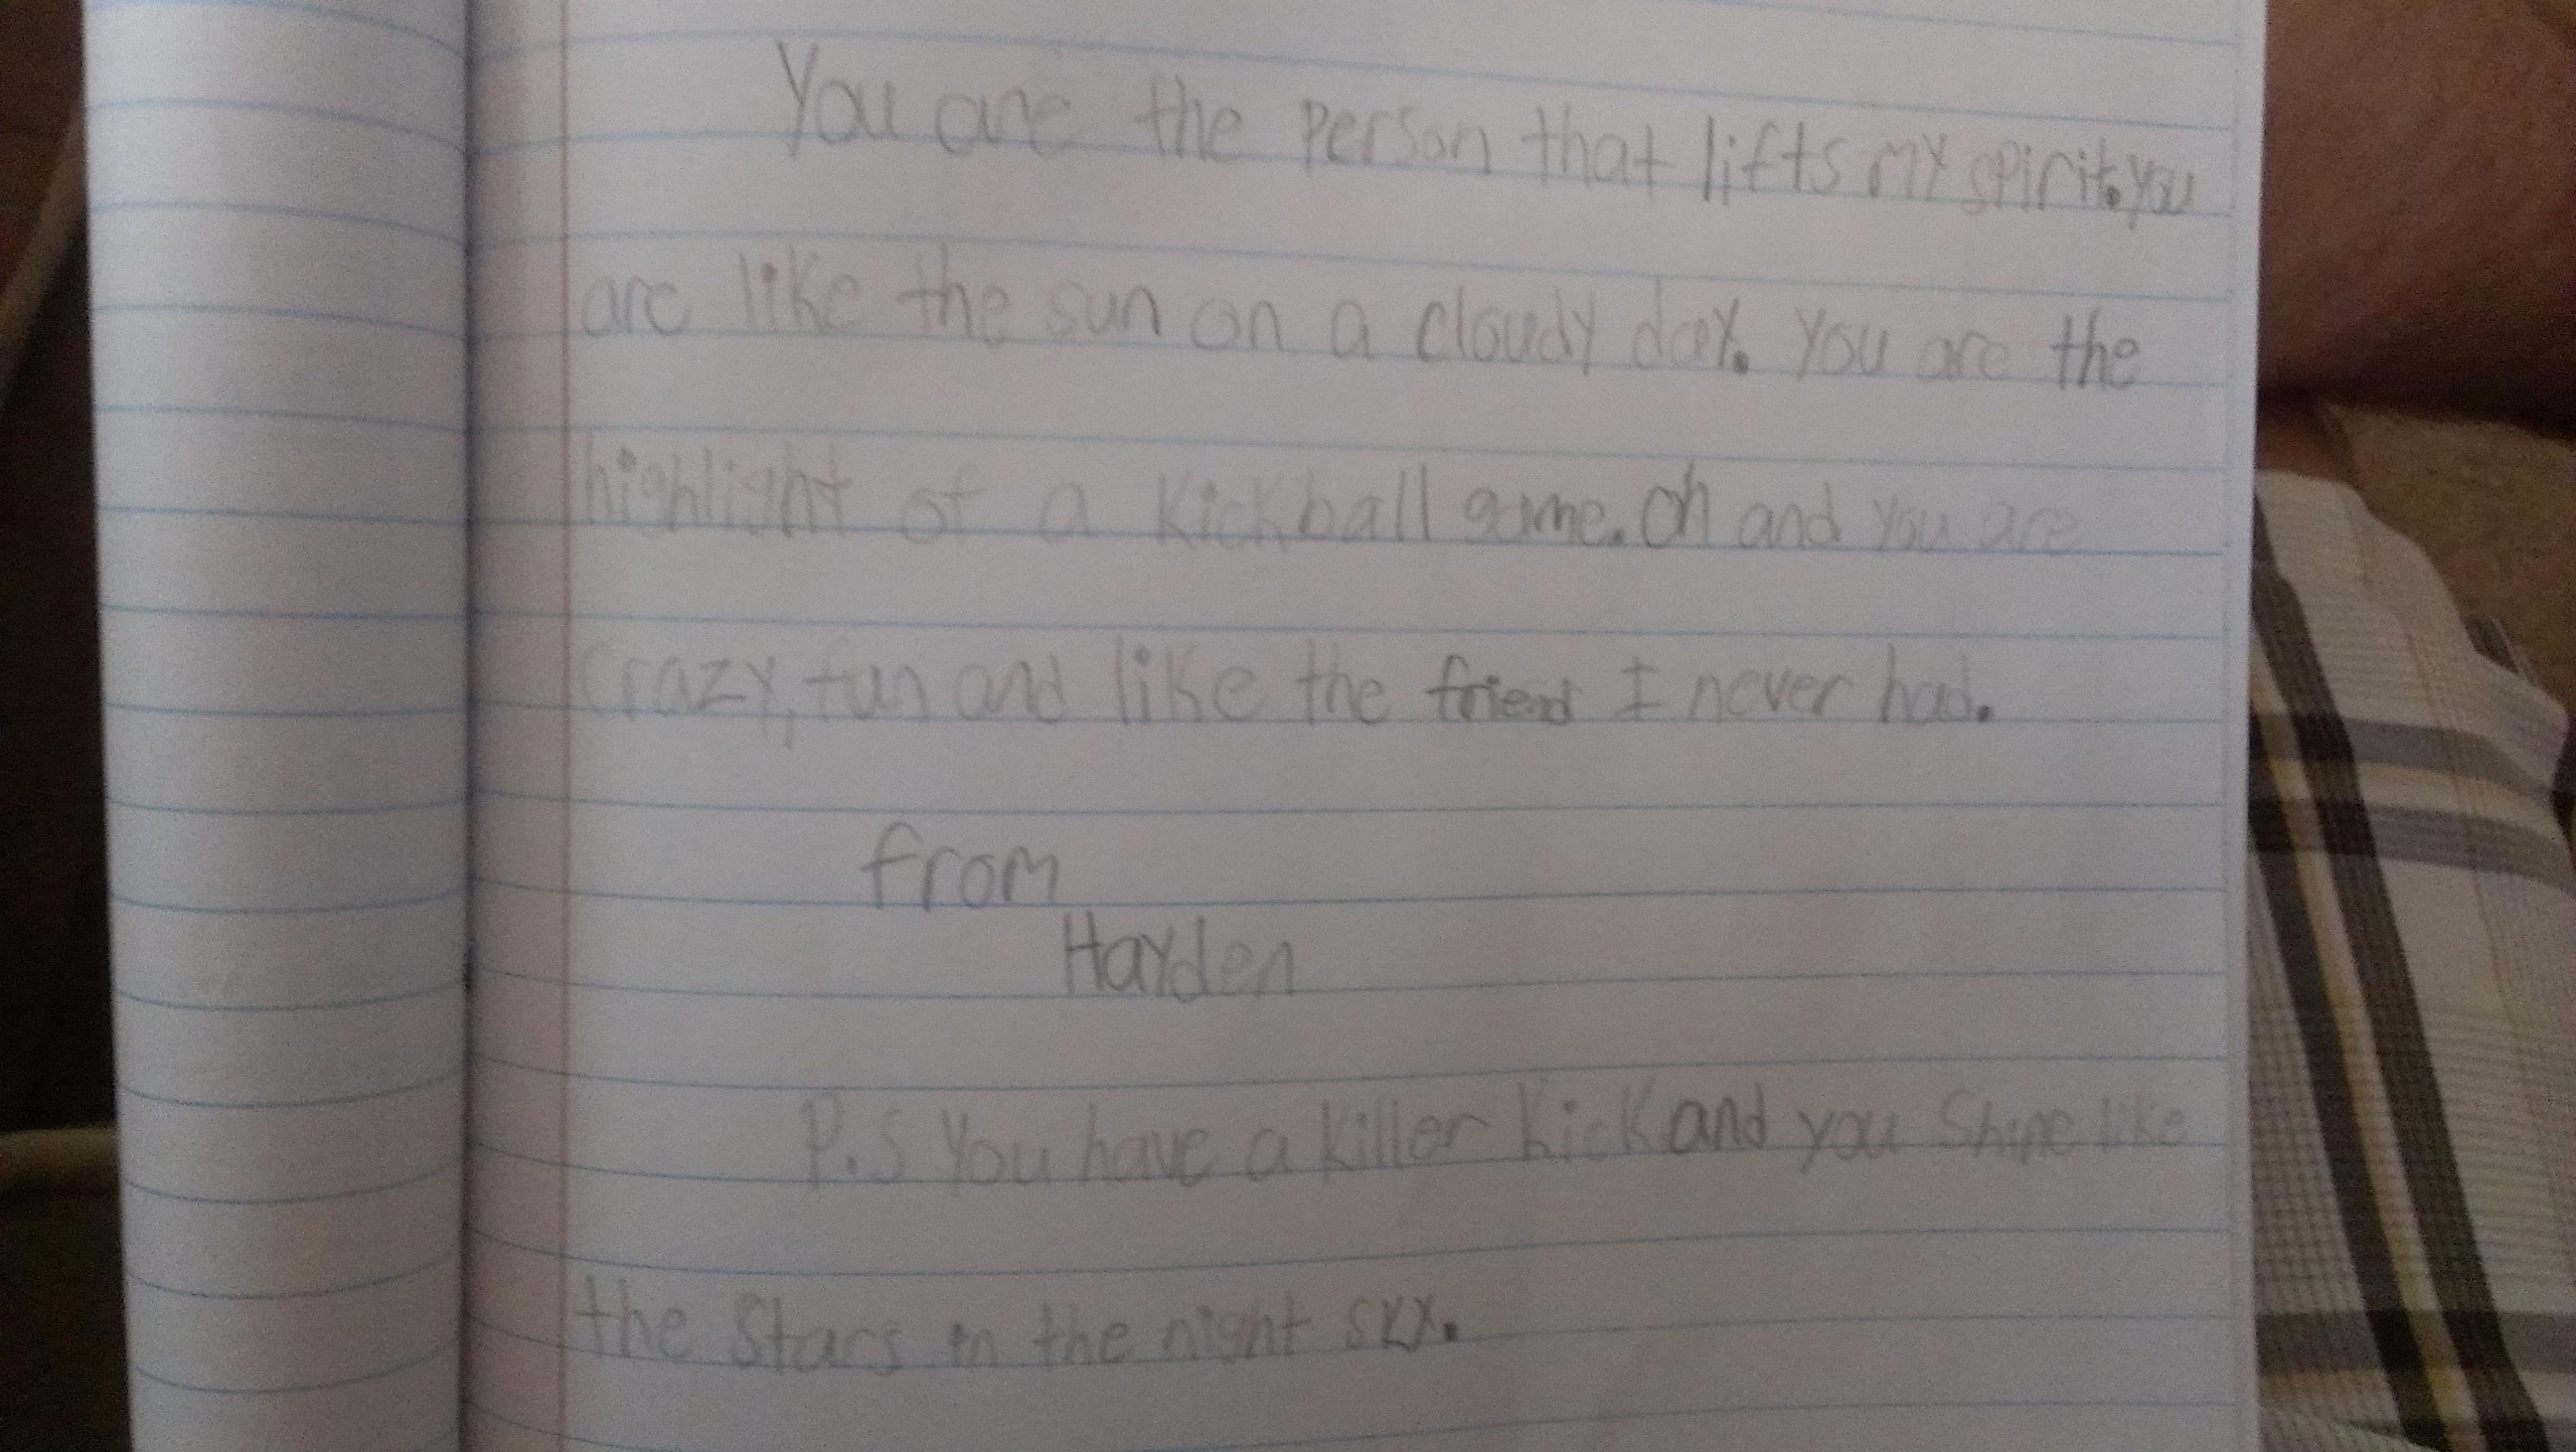 You are the person that lifts my spirit. you
are like the sun on a cloudy day. You are the
highlight of a kickball game. Oh and you are
crazy, fun and like the friend I never had.
from
Hayden
P.S You have a killer kick and you shine like
the stars in the night sky.